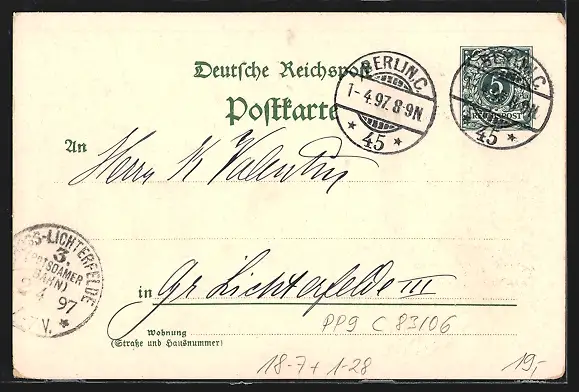 Deutsche Reichspost
BERLIN.C.
1-4.97.8-9N
* 45 *
BERLIN.C.
45 *
5
REICHSPOST
Postkarte
An
Herrn K Valentin
GROSS-LICHTERFELDE
3.
(POTSDAMER
BAHN)
2 4 97
V. *
in Gr Lichterfelde III
PP9 C 83/06
Wohnung
(Straße und Hausnummer)
18-7+1-28
19,-